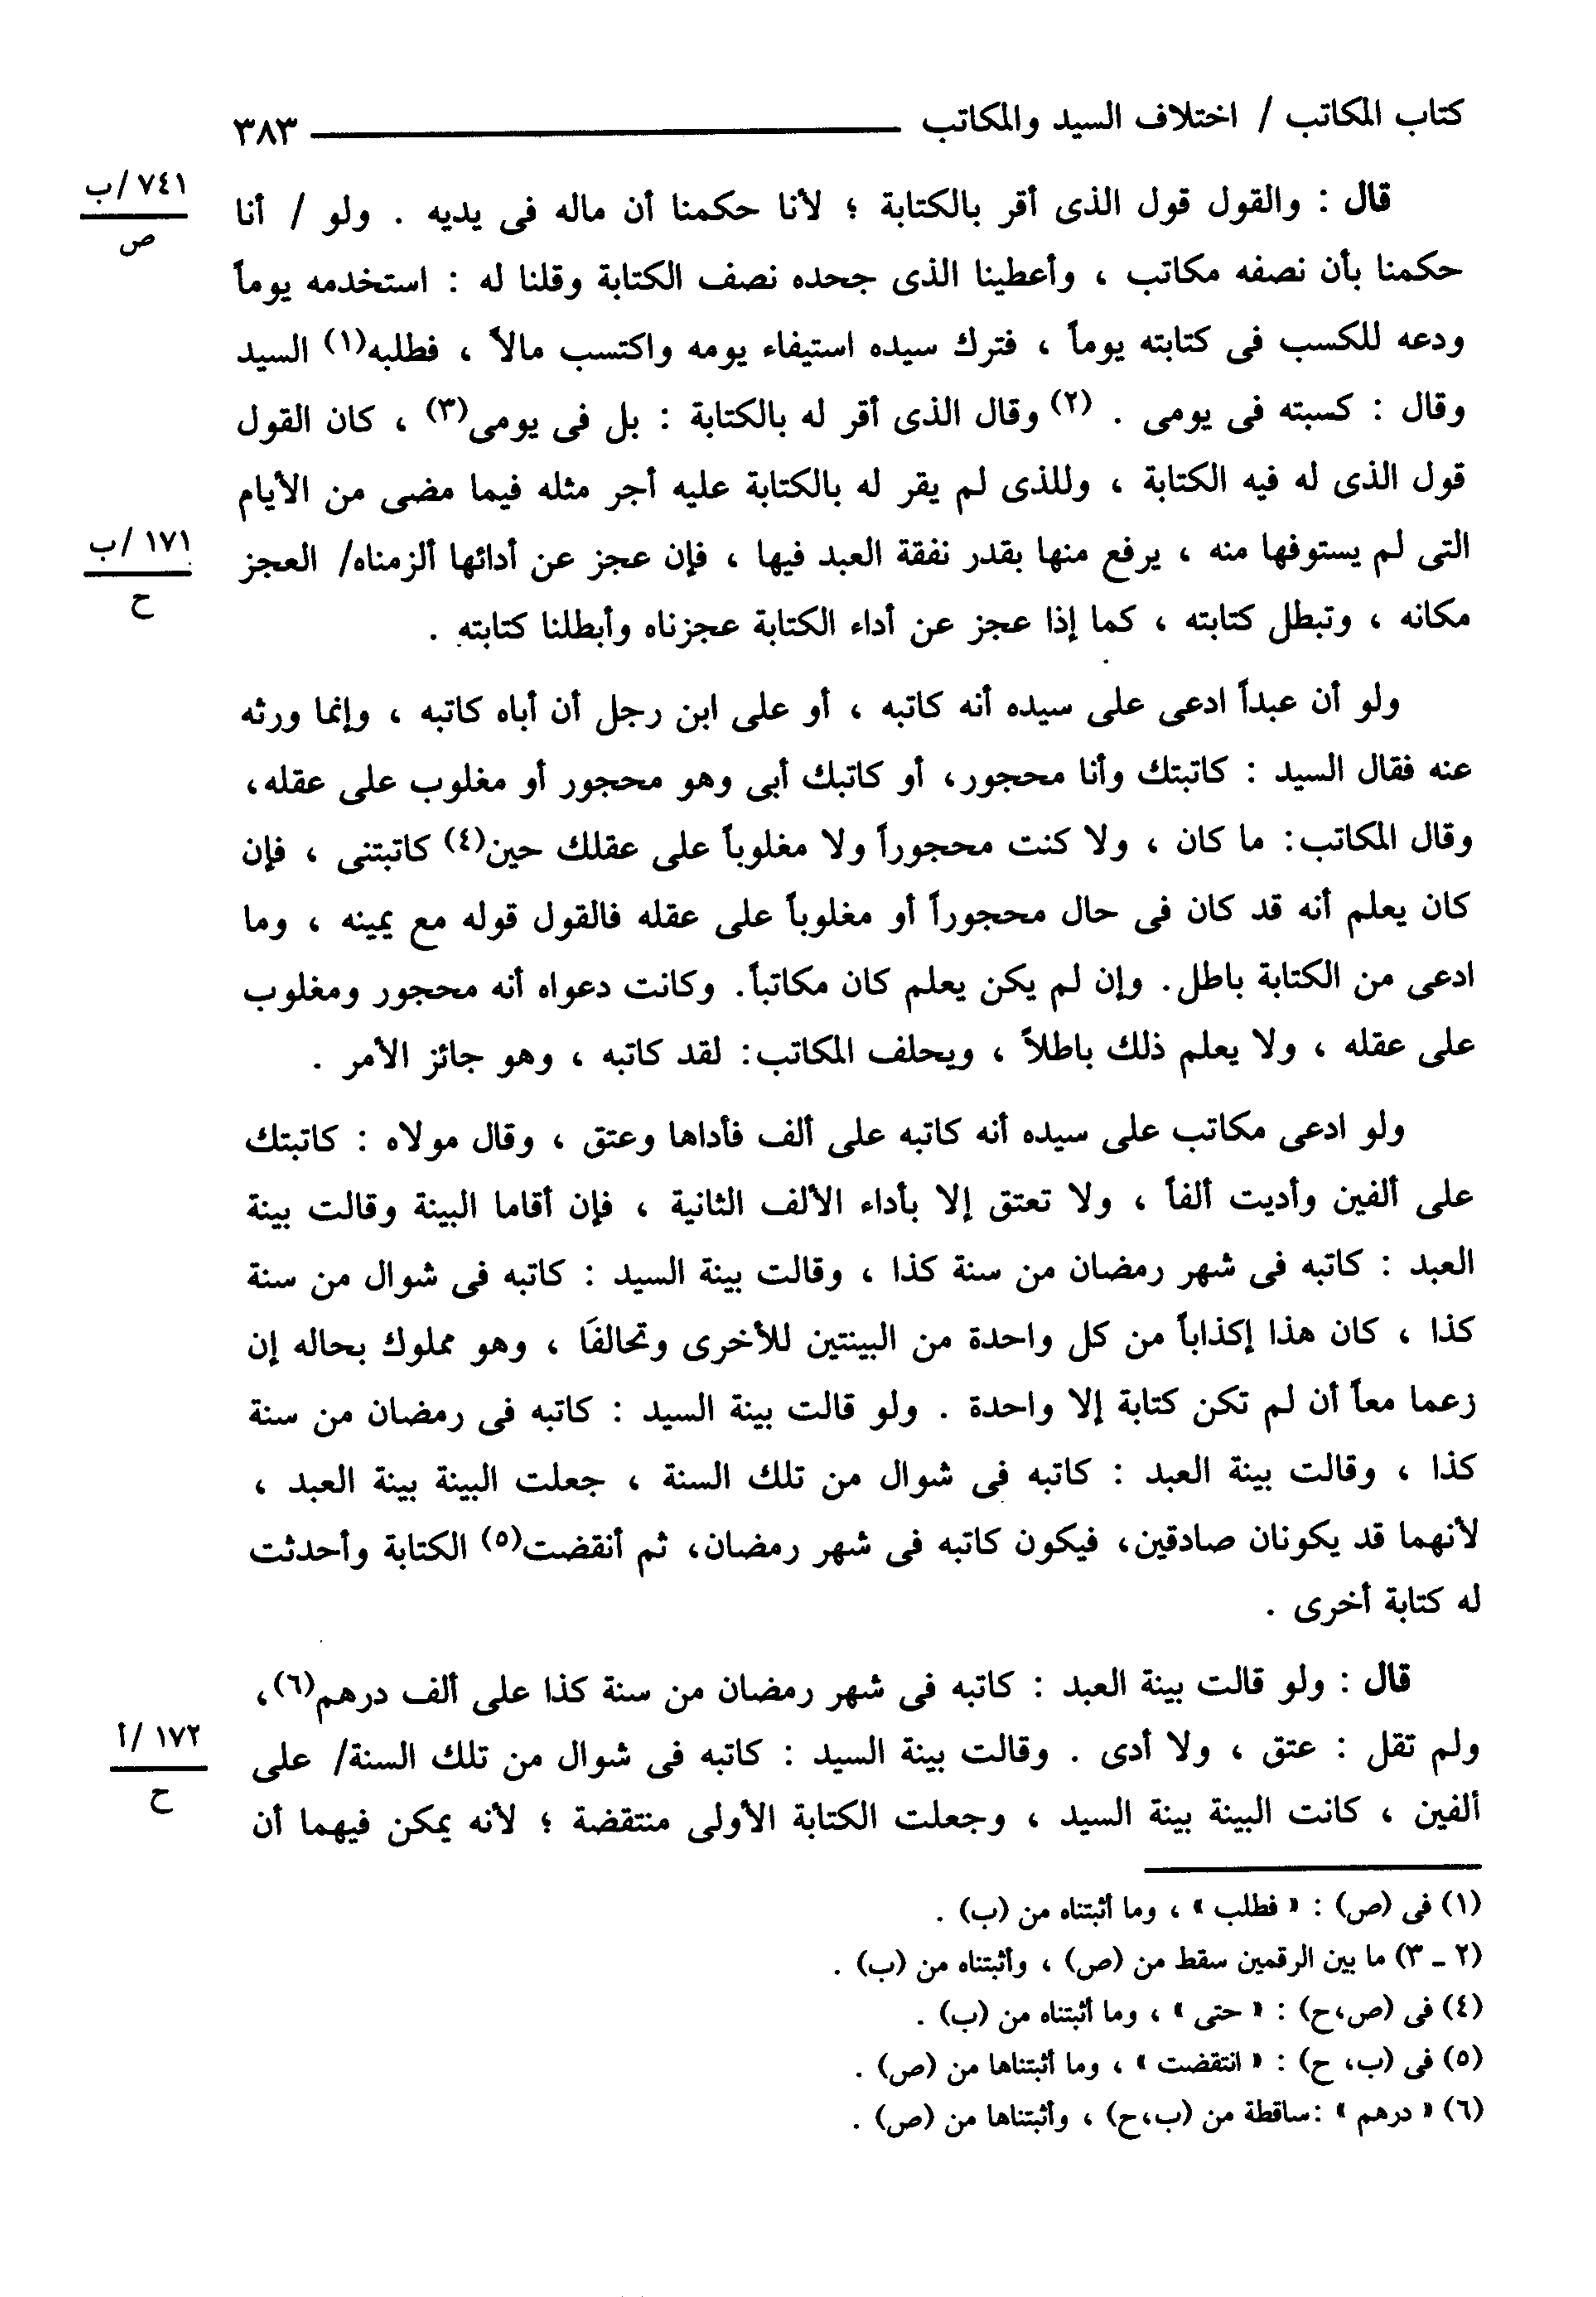 كتاب المكاتب / اختلاف السيد والمكاتب ــــــــــ ٣٨٣
قال : والقول قول الذى أقر بالكتابة ؛ لأنا حكمنا أن ماله فى يديه . ولو / أنا
٧٤١ /ب
ص
حكمنا بأن نصفه مكاتب ، وأعطينا الذى جحده نصف الكتابة وقلنا له : استخدمه يوماً
ودعه للكسب فى كتابته يوماً ، فترك سيده استيفاء يومه واكتسب مالاً ، فطلبه(١) السيد
وقال : كسبته فى يومى . (٢) وقال الذى أقر له بالكتابة : بل فى يومى(٣) ، كان القول
قول الذى له فيه الكتابة ، وللذى لم يقر له بالكتابة عليه أجر مثله فيما مضى من الأيام
التى لم يستوفها منه ، يرفع منها بقدر نفقة العبد فيها ، فإن عجز عن أدائها ألزمناه/ العجز
١٧١ /ب
ح
مكانه ، وتبطل كتابته ، كما إذا عجز عن أداء الكتابة عجزناه وأبطلنا كتابته .
ولو أن عبداً ادعى على سيده أنه كاتبه ، أو على ابن رجل أن أباه كاتبه ، وإنما ورثه
عنه فقال السيد : كاتبتك وأنا محجور، أو كاتبك أبى وهو محجور أو مغلوب على عقله،
وقال المكاتب: ما كان ، ولا كنت محجوراً ولا مغلوباً على عقلك حين(٤) كاتبتنى ، فإن
كان يعلم أنه قد كان فى حال محجوراً أو مغلوباً على عقله فالقول قوله مع يمينه ، وما
ادعى من الكتابة باطل. وإن لم يكن يعلم كان مكاتباً. وكانت دعواه أنه محجور ومغلوب
على عقله ، ولا يعلم ذلك باطلاً ، ويحلف المكاتب: لقد كاتبه ، وهو جائز الأمر .
ولو ادعى مكاتب على سيده أنه كاتبه على ألف فأداها وعتق ، وقال مولاه : كاتبتك
على ألفين وأديت ألفاً ، ولا تعتق إلا بأداء الألف الثانية ، فإن أقاما البينة وقالت بينة
العبد : كاتبه فى شهر رمضان من سنة كذا ، وقالت بينة السيد : كاتبه فى شوال من سنة
كذا ، كان هذا إكذاباً من كل واحدة من البينتين للأخرى وتحالفَا ، وهو مملوك بحاله إن
زعما معاً أن لم تكن كتابة إلا واحدة . ولو قالت بينة السيد : كاتبه فى رمضان من سنة
كذا ، وقالت بينة العبد : كاتبه فى شوال من تلك السنة ، جعلت البينة بينة العبد ،
لأنهما قد يكونان صادقين، فيكون كاتبه فى شهر رمضان، ثم أنقضت(٥) الكتابة وأحدثت
له كتابة أخرى .
قال : ولو قالت بينة العبد : كاتبه فى شهر رمضان من سنة كذا على ألف درهم(٦)،
ولم تقل : عتق ، ولا أدى . وقالت بينة السيد : كاتبه فى شوال من تلك السنة/ على
١٧٢ /أ
ح
ألفين ، كانت البينة بينة السيد ، وجعلت الكتابة الأولى منتقضة ؛ لأنه يمكن فيهما أن
(١) فى (ص) : « فطلب » ، وما أثبتناه من (ب) .
(٢ ـ ٣) ما بين الرقمين سقط من (ص) ، وأثبتناه من (ب) .
(٤) فى (ص،ح) : « حتى » ، وما أثبتناه من (ب) .
(٥) فى (ب، ح) : « انتقضت » ، وما أثبتناها من (ص) .
(٦) « درهم » :ساقطة من (ب،ح) ، وأثبتناها من (ص) .